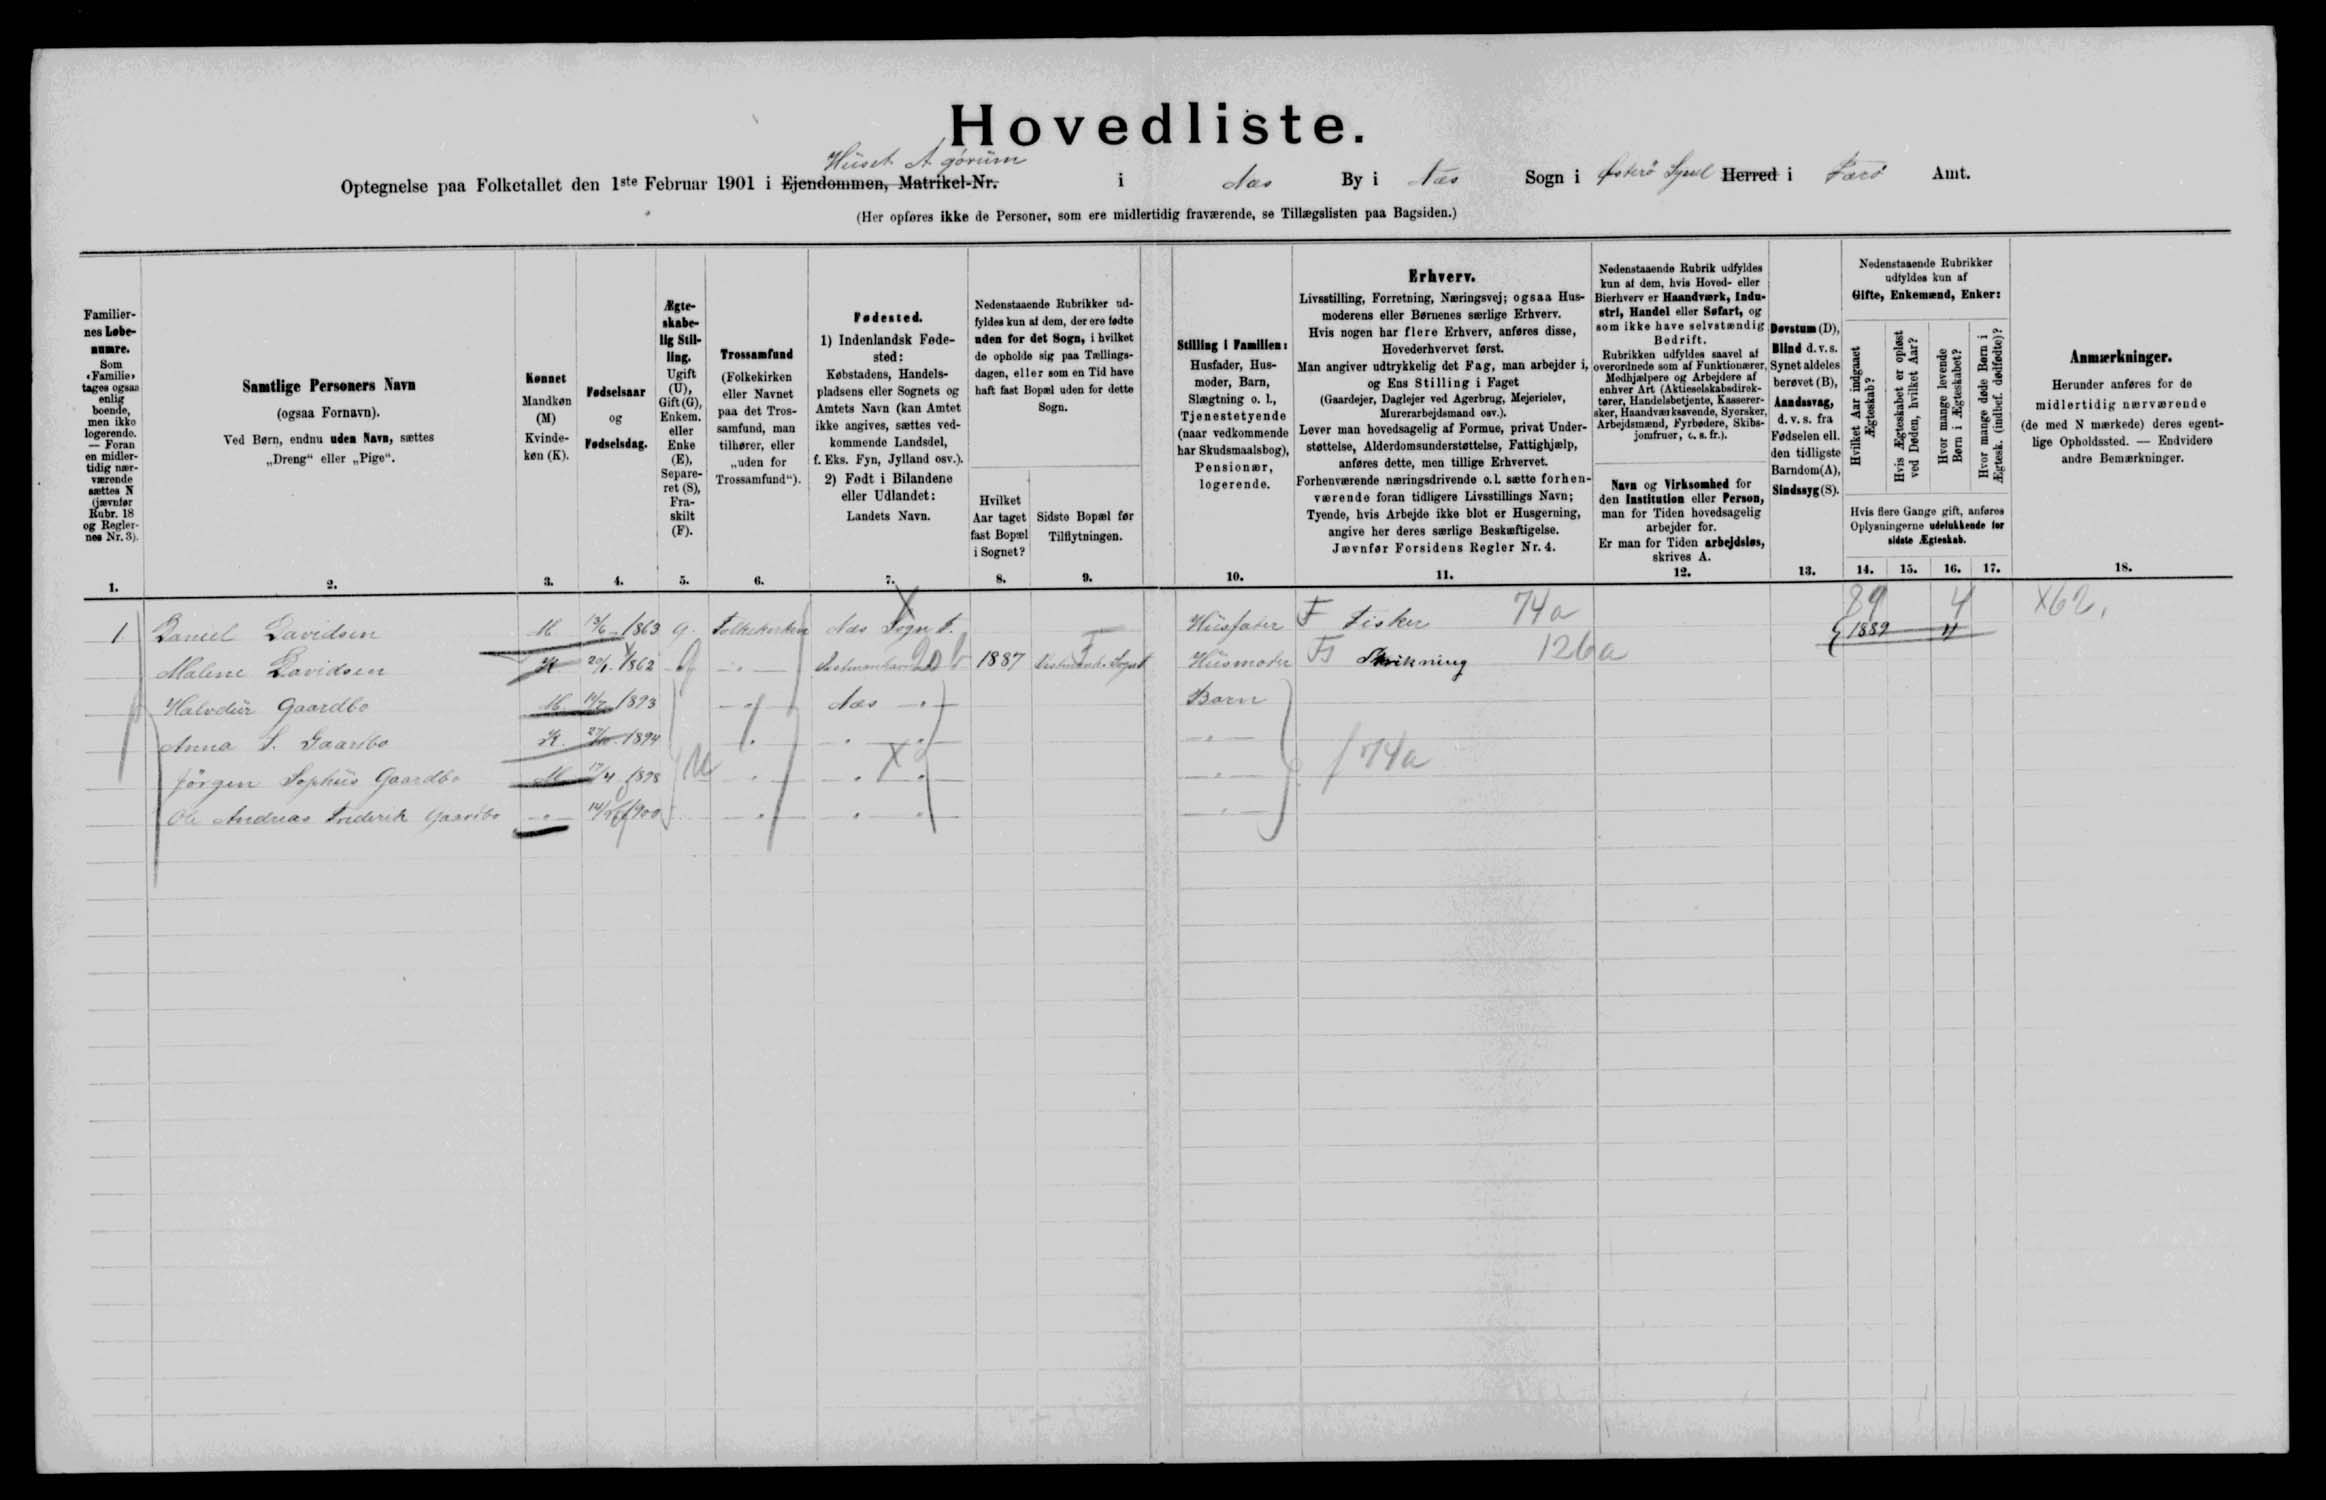 Hovedliste.
Huset A görum
Optegnelse paa Folketallet den 1ste Februar 1901 i Ejendommen, Matrikel-Nr. i Næs By i Næs Sogn i Østerø Syssel Herred i Færø Amt.
(Her opføres ikke de Personer, som ere midlertidig fraværende, se Tillægslisten paa Bagsiden.)
Familier-
nes Løbe-
numre.
Som
«Familie»
tages ogsaa
enlig
boende,
men ikke
logerende.
— Foran
en midler-
tidig nær-
værende
sættes N
(jævnfør
Rubr. 18
og Regler-
nes Nr. 3).
1.
Samtlige Personers Navn
(ogsaa Fornavn).
Ved Børn, endnu uden Navn, sættes
„Dreng“ eller „Pige“.
2.
Kønnet
Mandkøn
(M)
Kvinde-
køn (K).
3.
Fødselsaar
og
Fødselsdag.
4.
Ægte-
skabe-
lig Stil-
ling.
Ugift
(U),
Gift (G),
Enkem.
eller
Enke
(E),
Separe-
ret (S),
Fra-
skilt
(F).
5.
Trossamfund
(Folkekirken
eller Navnet
paa det Tros-
samfund, man
tilhører, eller
„uden for
Trossamfund“).
6.
Fødested.
1) Indenlandsk Føde-
sted:
Købstadens, Handels-
pladsens eller Sognets og
Amtets Navn (kan Amtet
ikke angives, sættes ved-
kommende Landsdel,
f. Eks. Fyn, Jylland osv.).
2) Født i Bilandene
eller Udlandet:
Landets Navn.
7.
Nedenstaaende Rubrikker ud-
fyldes kun af dem, der ere fødte
uden for det Sogn, i hvilket
de opholde sig paa Tællings-
dagen, eller som en Tid have
haft fast Bopæl uden for dette
Sogn.
Hvilket
Aar taget
fast Bopæl
i Sognet?
8.
Sidste Bopæl før
Tilflytningen.
9.
Stilling i Familien:
Husfader, Hus-
moder, Barn,
Slægtning o. l.,
Tjenestetyende
(naar vedkommende
har Skudsmaalsbog),
Pensionær,
logerende.
10.
Erhverv.
Livsstilling, Forretning, Næringsvej; ogsaa Hus-
moderens eller Børnenes særlige Erhverv.
Hvis nogen har flere Erhverv, anføres disse,
Hovederhvervet først.
Man angiver udtrykkelig det Fag, man arbejder i,
og Ens Stilling i Faget
(Gaardejer, Daglejer ved Agerbrug, Mejerielev,
Murerarbejdsmand osv.).
Lever man hovedsagelig af Formue, privat Under-
støttelse, Alderdomsunderstøttelse, Fattighjælp,
anføres dette, men tillige Erhvervet.
Forhenværende næringsdrivende o. l. sætte forhen-
værende foran tidligere Livsstillings Navn;
Tyende, hvis Arbejde ikke blot er Husgerning,
angive her deres særlige Beskæftigelse.
Jævnfør Forsidens Regler Nr. 4.
11.
Nedenstaaende Rubrik udfyldes
kun af dem, hvis Hoved- eller
Bierhverv er Haandværk, Indu-
stri, Handel eller Søfart, og
som ikke have selvstændig
Bedrift.
Rubrikken udfyldes saavel af
overordnede som af Funktionærer,
Medhjælpere og Arbejdere af
enhver Art (Aktieselskabsdirek-
tører, Handelsbetjente, Kasserer-
sker, Haandværkssvende, Syersker,
Arbejdsmænd, Fyrbødere, Skibs-
jomfruer, o. s. fr.).
Navn og Virksomhed for
den Institution eller Person,
man for Tiden hovedsagelig
arbejder for.
Er man for Tiden arbejdsløs,
skrives A.
12.
Døvstum (D),
Blind d. v. s.
Synet aldeles
berøvet (B),
Aandssvag,
d. v. s. fra
Fødselen ell.
den tidligste
Barndom (A),
Sindssyg (S).
13.
Nedenstaaende Rubrikker
udfyldes kun af
Gifte, Enkemænd, Enker:
Hvilket Aar indgaaet
Ægteskab?
Hvis Ægteskabet er opløst
ved Døden, hvilket Aar?
Hvor mange levende
Børn i Ægteskabet?
Hvor mange døde Børn i
Ægtesk. (indbef. dødfødte)?
Hvis flere Gange gift, anføres
Oplysningerne udelukkende for
sidste Ægteskab.
14. 15. 16. 17.
Anmærkninger.
Herunder anføres for de
midlertidig nærværende
(de med N mærkede) deres egent-
lige Opholdssted. — Endvidere
andre Bemærkninger.
18.
89 4 X62.
1 Daniel Davidsen M 13/6 1863 G. Folkekirken Næs Sogn F. Husfader F Fisker 74a 1889 4
Malene Davidsen K 20/1 1862 G — " — 1887 Husmoder 126a
Halvdur Gaardbo M. 1893 — " — Næs — " — Barn
Anna S. Gaardbo K. 1894 — " — — " — — " —
Jörgen Sophus Gaardbo M 17/4 1898 U — " — — " — — " — 74a
Ole Andreas Frederik Gaardbo — " — 1900 — " — — " — — " —